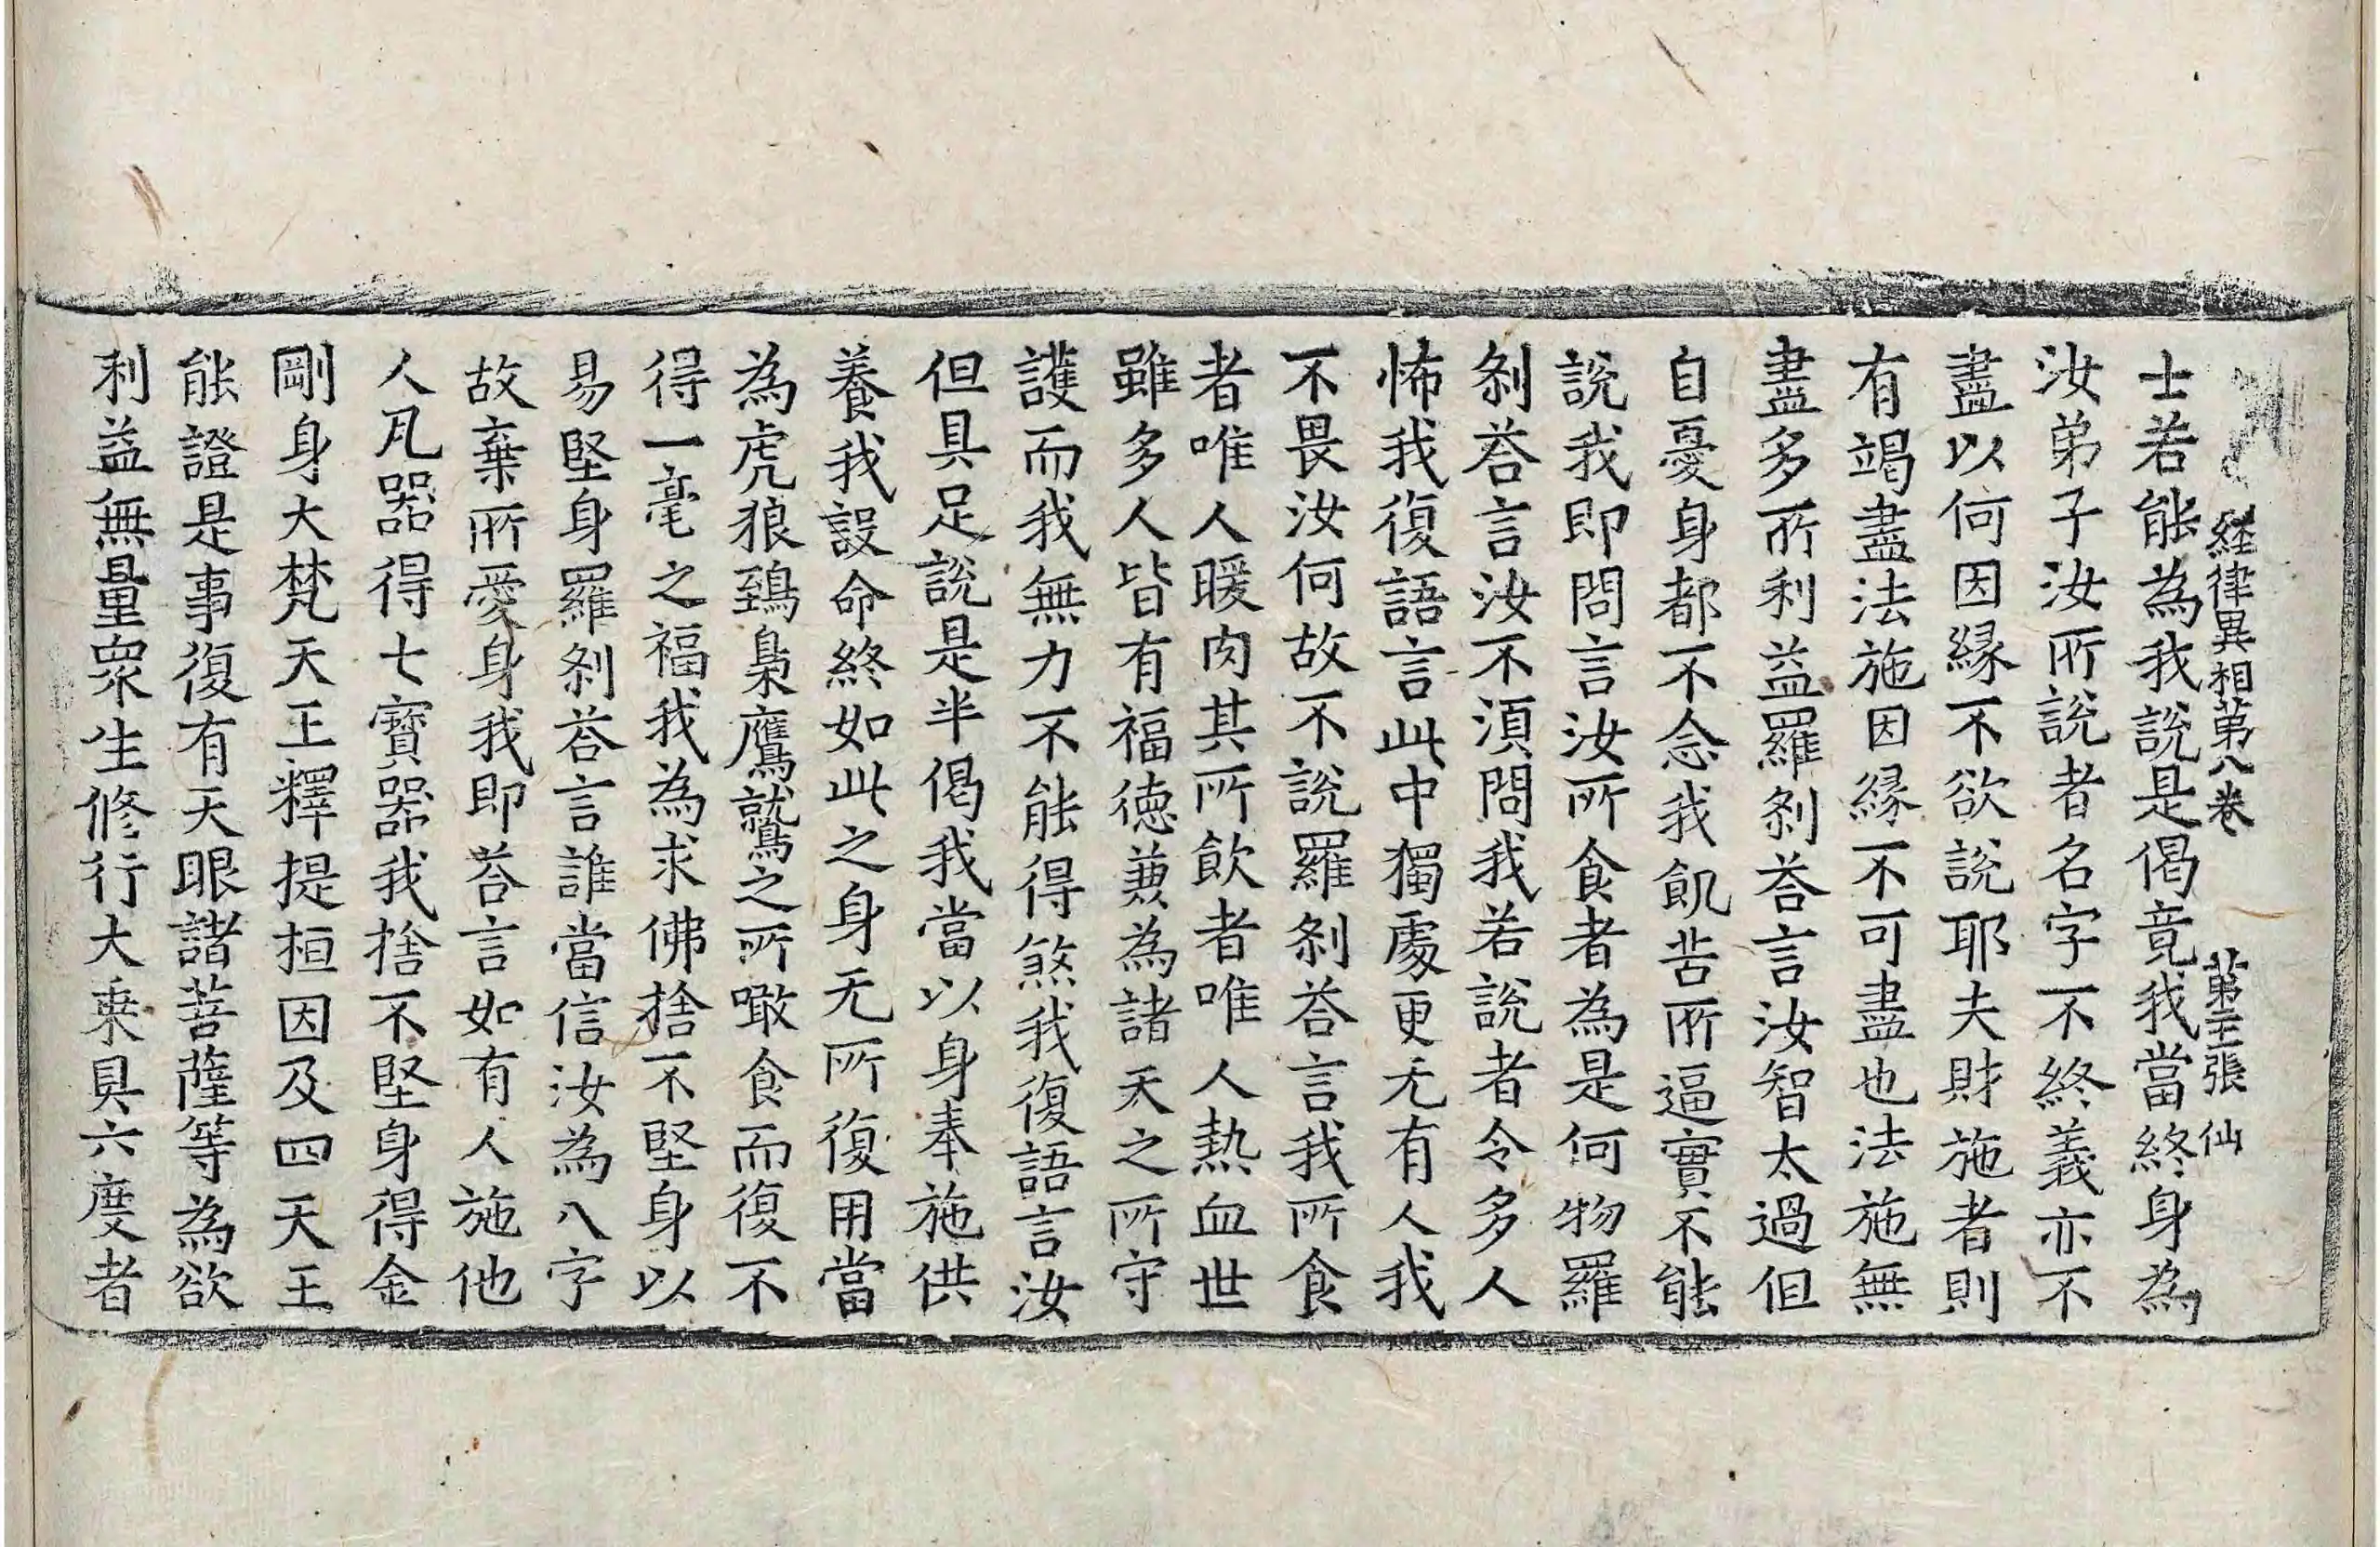 経律異相第八卷 第三張 仙
士若能為我說是偈竟我當終身為
汝弟子汝所說者名字不終義亦不
盡以何因縁不欲說耶夫財施者則
有竭盡法施因縁不可盡也法施無
盡多所利益羅刹荅言汝智太過但
自憂身都不念我飢苦所逼實不能
說我即問言汝所食者為是何物羅
刹荅言汝不湏問我若說者令多人
怖我復語言此中獨處更无有人我
不畏汝何故不說羅刹荅言我所食
者唯人暖肉其所飲者唯人熱血世
雖多人皆有福德兼為諸天之所守
護而我無力不能得煞我復語言汝
但具足說是半偈我當以身奉施供
養我設命終如此之身无所復用當
為虎狼鵄梟鷹鷲之所噉食而復不
得一毫之福我為求佛捨不堅身以
易堅身羅刹荅言誰當信汝為八字
故棄所愛身我即荅言如有人施他
人瓦器得七寶器我捨不堅身得金
剛身大梵天王釋提桓因及四天王
能證是事復有天眼諸菩薩等為欲
利益無量衆生修行大乗具六度者